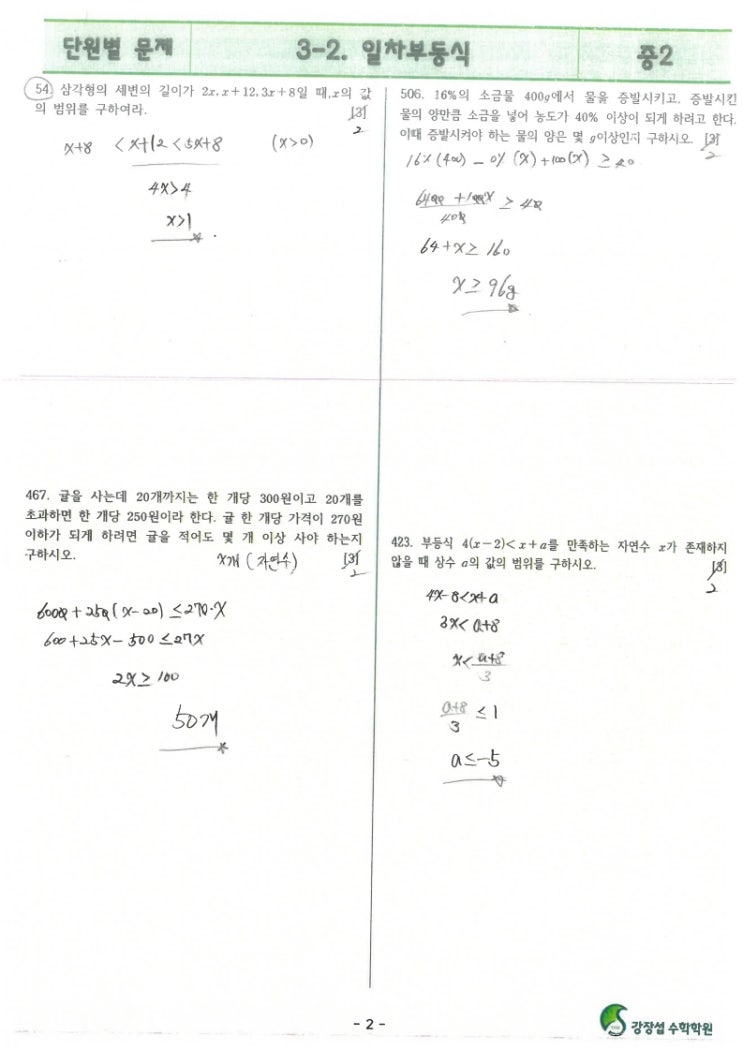 단원별 문제 3-2. 일차부등식 중2
54. 삼각형의 세변의 길이가 2x, x+12, 3x+8일 때, x의 값
의 범위를 구하여라. [3]
2
x+8 < x+12 < 5x+8 (x>0)
4x>4
x>1
467. 귤을 사는데 20개까지는 한 개당 300원이고 20개를
초과하면 한 개당 250원이라 한다. 귤 한 개당 가격이 270원
이하가 되게 하려면 귤을 적어도 몇 개 이상 사야 하는지
구하시오. x개 (자연수) [3]
2
6000 + 250(x-20) ≤ 270·x
600+25x-500 ≤ 27x
2x ≥ 100
50개
506. 16%의 소금물 400g에서 물을 증발시키고, 증발시킨
물의 양만큼 소금을 넣어 농도가 40% 이상이 되게 하려고 한다.
이때 증발시켜야 하는 물의 양은 몇 g이상인지 구하시오. [3]
2
16%(400) - 0%(x) + 100(x) ≥ 40
6400+100x
400
≥ 40
64+x ≥ 160
x ≥ 96g
423. 부등식 4(x-2)<x+a를 만족하는 자연수 x가 존재하지
않을 때 상수 a의 값의 범위를 구하시오. [3]
2
4x-8<x+a
3x< a+8
x< a+8
3
a+8
3
≤ 1
a≤-5
- 2 -
강장섭 수학학원